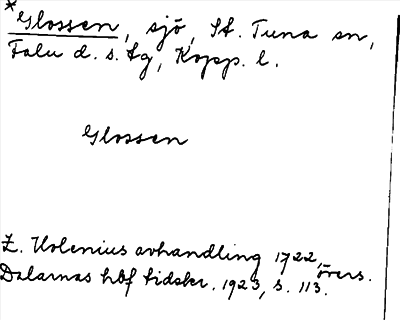 *Glossen, sjö, St. Tuna sn,
Falu d. s. tg, Kopp. l.
Glossen
E. Holenius avhandling 1722, övers.
Dalarnas hbf tidskr. 1923, s. 113.